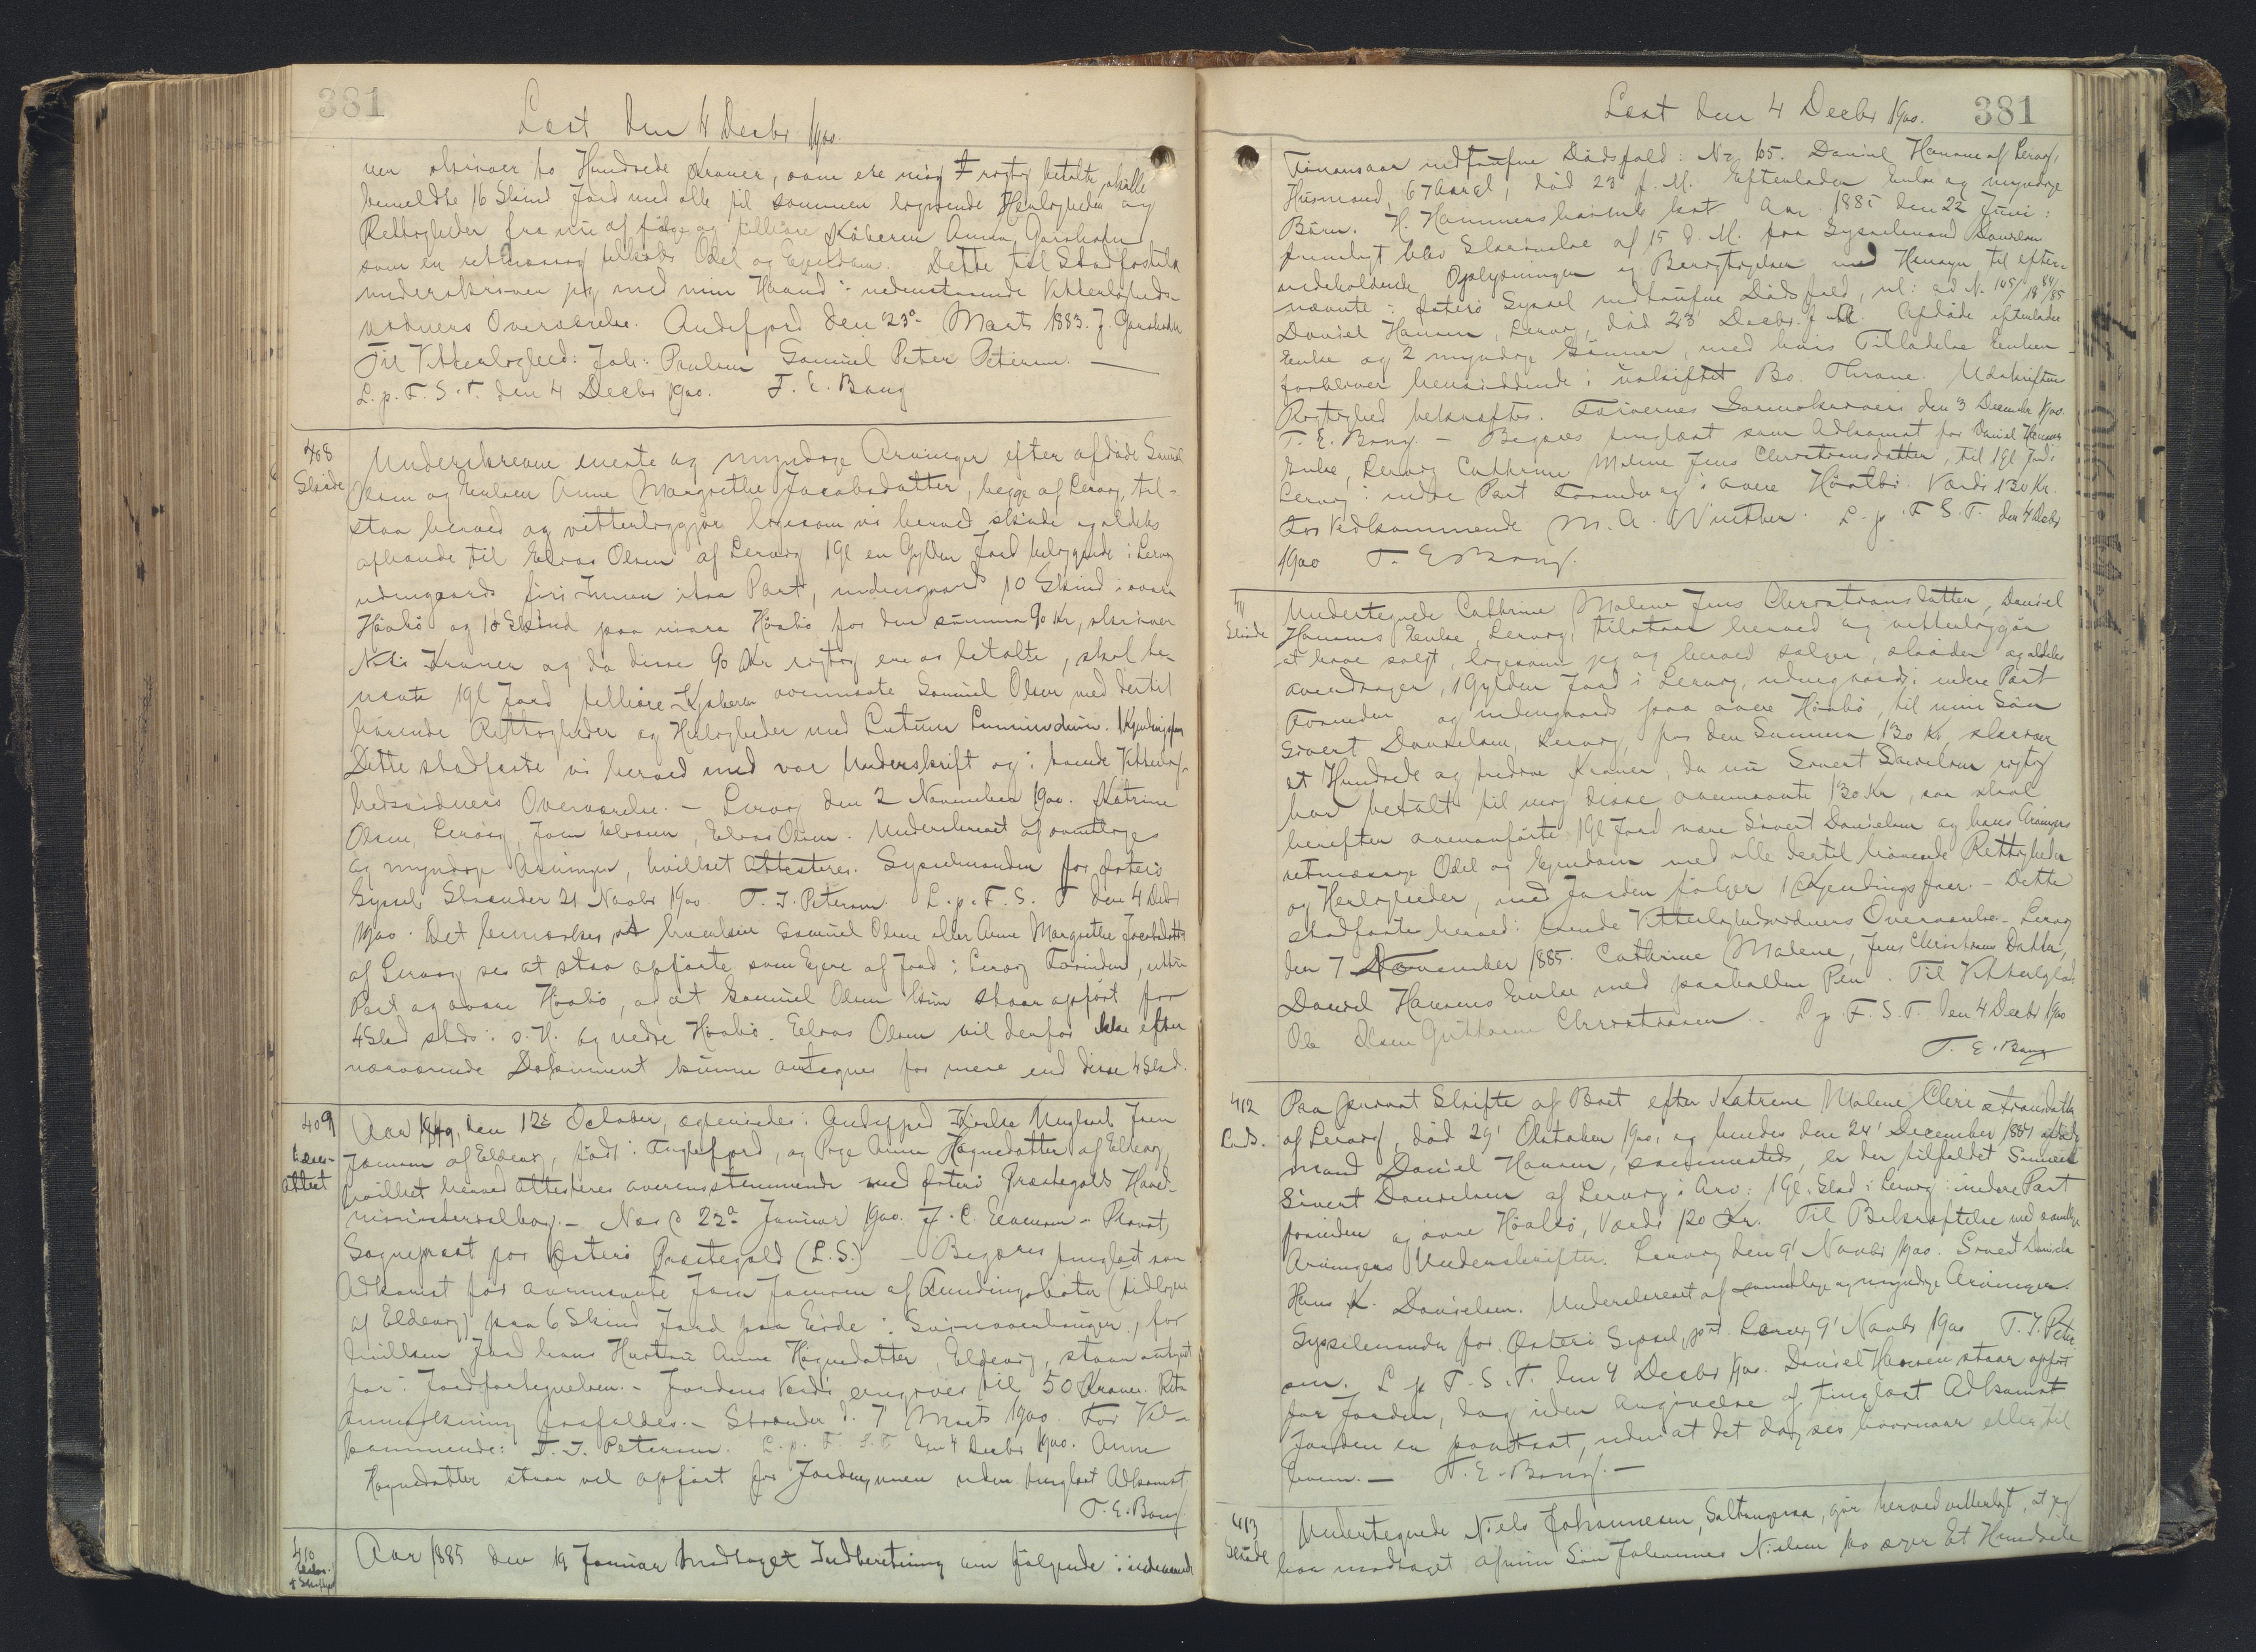 381
Læst den 4 Decbr 1900.
skriver to Hundrede Kroner, som ere mig rigtig betalte, skulle
bemeldte 16 Skind Jord med alle til sammen liggende Herligheder og
Rettigheder fra nu af følge og tilhøre Køberen Anna Garshofn
som en retmæssig Odel og Ejendom. Dette til Stadfæstelse
underskriver jeg med min Haand i nedenstaaende Vitterligheds-
vidners Overværelse. Andefjord den 23de Marts 1883. J. Garshofn
Til Vitterlighed: Joh: Paulsen Samuel Peter Petersen. —
L. p. F. S. T. den 4 Decbr 1900. T. E. Bang
408
Skøde
Underskrevne eneste og myndige Arvinger efter afdøde Samuel
Olsen og Enken Anne Margrethe Jacobsdatter, begge af Lervig, til-
staa herved og vitterliggjør ligesom vi herved skøde og aldeles
afhænde til Elias Olsen af Lervig 1 Gl en Gylden Jord beliggende i Lervig
udengaards Part, indengaards 10 Skind i øvre
Høabø og 10 Skind paa nedre Høabø for den summa 90 Kr, skriver
Niti Kroner og da disse 90 Kr rigtig ere os betalte, skal be-
nævnte 1 Gl Jord tilhøre Kjøberen ovennævnte Samuel Olsen med dertil
hørende Rettigheder og Herligheder med 1 Kjendingsfaar
Dette stadfæste vi herved med vor Underskrift og i tvende Vitterlig-
hedsvidners Overværelse. — Lervig den 2 November 1900. Katrine
Olsen, Lervig, Joen Eliasen, Elias Olsen. Underskrevet af samtlige
og myndige Arvinger, hvilket Attesteres. Sysselmanden for Østerø
Syssel Strænder 21 Novbr 1900. T. J. Petersen. L. p. F. S. T den 4 Decbr
1900. Det bemærkes at hverken Samuel Olsen eller Anne Margrethe Jacobsdatter
af Lervig ses at staa opførte som Ejere af Jord i Lervig Forinden, ytre
Part og øvre Høabø, og at Samuel Olsen kun staar opført for
4 Skd sbds: o. H. og nedre Høabø. Elias Olsen vil derfor ikke efter
nærværende Dokument kunne antegnes for mere end disse 4 Skd.
409
Vielses-
attest
Aar 1849, den 12te October, ægteviedes i Andefjord Kirke Ungkarl Joen
Joensen af Eldevig, født i Fuglefjord, og Pige Anne Høgnedatter af Eldevig,
hvilket herved attesteres overensstemmende med Østerø Præstegjelds Hoved-
ministerialbog. — Næs d 22de Januar 1900. J. C. Evensen - Provst,
Sognepræst for Østerø Præstegjeld (L.S.) — Begæres tinglæst som
Adkomst for ovennævnte Joen Joensen af Fundingsbotn (tidligere
af Eldevig) paa 6 Skind Jord paa Eide i Svinaverhuuger, for
hvilken Jord hans Hustru Anne Høgnedatter, Eldevig, staar antegnet
for i Jordfortegnelsen. — Jordens Værdi angives til 50 Kroner. Ret
anmærkning frafaldes. — Strænder d. 7 Marts 1900. For Ved-
kommende: T. J. Petersen. L. p. F. S. T den 4 Decbr 1900. Anne
Høgnedatter staar vel opført for Jorden, men uden tinglæst Adkomst
T. E. Bang
410
Aar 1885 den 19 Januar Modtaget Indberetning om følgende i indeværende
Læst den 4 Decbr 1900. 381
Finansaar indtrufne Dødsfald: No 65. Daniel Hansen af Lervig,
Husmand, 67 Aar gl, død 23' f. M. Efterlader Enke og myndige
Børn. H. Hammershaimb kst Aar 1885 den 22 Juni:
fremlagt blev Skrivelse af 15 d. M. fra Sysselmand Danielsen
indeholdende Oplysninger og Beregtigelser med Hensyn til efter-
nævnte i Østerø Syssel indtrufne Dødsfald, nl: ad N. 105/1884/85
Daniel Hansen, Lervig, død 23' Decbr. f. A. Afdøde efterlader
Enke og 2 myndige Sønner, med hvis Tilladelse Enken
forbliver hensiddende i uskiftet Bo. Thrane. Udskriftens
Rigtighed bekræftes. Færøernes Sorenskriveri den 3 December 1900.
T. E. Bang. — Begæres tinglæst som Adkomst for Daniel Hansens
Enke, Lervig Cathrine Malene Jens Christiansdatter, til 1 Gl Jord i
Lervig: indre Part Forinden og i øvre Høabø. Værdi 130 Kr.
For Vedkommende M. A. Winther. L. p. F. S. T. den 4 Decbr
1900 T. E. Bang.
411
Skøde
Undertegnede Cathrine Malene Jens Christiansdatter, Daniel
Hansens Enke, Lervig, tilstaar herved og vitterliggjør
at have solgt, ligesom jeg og herved sælger, skøder og aldeles
overdrager, 1 Gylden Jord i Lervig, udengaards: indre Part
Forinden og indengaards paa øvre Høabø, til min Søn
Sivert Danielsen, Lervig, for den Summa 130 Kr, skriver
et Hundrede og tredive Kroner, da nu Sivert Danielsen rigtig
har betalt til mig disse ovennævnte 130 Kr, saa skal
herefter ovenanførte 1 Gl Jord være Sivert Danielsen og hans Arvingers
retmæssige Odel og Ejendom med alle dertil hørende Rettigheder
og Herligheder, med Jorden følger 1 Kjendingsfaar. — Dette
stadfæste herved i tvende Vitterlighedsvidners Overværelse. — Lervig
den 7 November 1885. Cathrine Malene, Jens Christians Datter,
Daniel Hansens Enke med paaholden Pen. Til Vitterlighed:
Ole Olsen Guttorm Christiansen. L. p. F. S. T. den 4 Decbr 1900
T. E. Bang
412
Paa privat Skifte af Boet efter Katrine Malene Christiansdatter
af Lervig, død 29' Oktober 1900, og hendes den 24' December 1884 afdøde
Mand Daniel Hansen, sammesteds, er der tilfaldet Sønnen
Sivert Danielsen af Lervig i Arv: 1 Gl. Skd i Lervig: indre Part
forinden og øvre Høabø, Værdi 120 Kr. Til Bekræftelse med samtlige
Arvingers Underskrifter. Lervig den 9' Novbr 1900. Sivert Danielsen
Hans K. Danielsen. Underskrevet af samtlige og myndige Arvinger.
Sysselmanden for Østerø Syssel, p.t. Lervig 9' Novbr 1900 T. J. Peter
sen. L p F. S. T. den 4 Decbr 1900. Daniel Hansen staar opført
for Jorden, dog uden Angivelse af tinglæst Adkomst
Jorden er pantsat, uden at det dog ses hvornaar eller til
hvem. — T. E. Bang. —
413
Skøde
Undertegnede Niels Johannesen, Saltangeraa, gør herved vitterligt, at jeg
har modtaget af min Søn Johannes Nielsen Et Hundrede